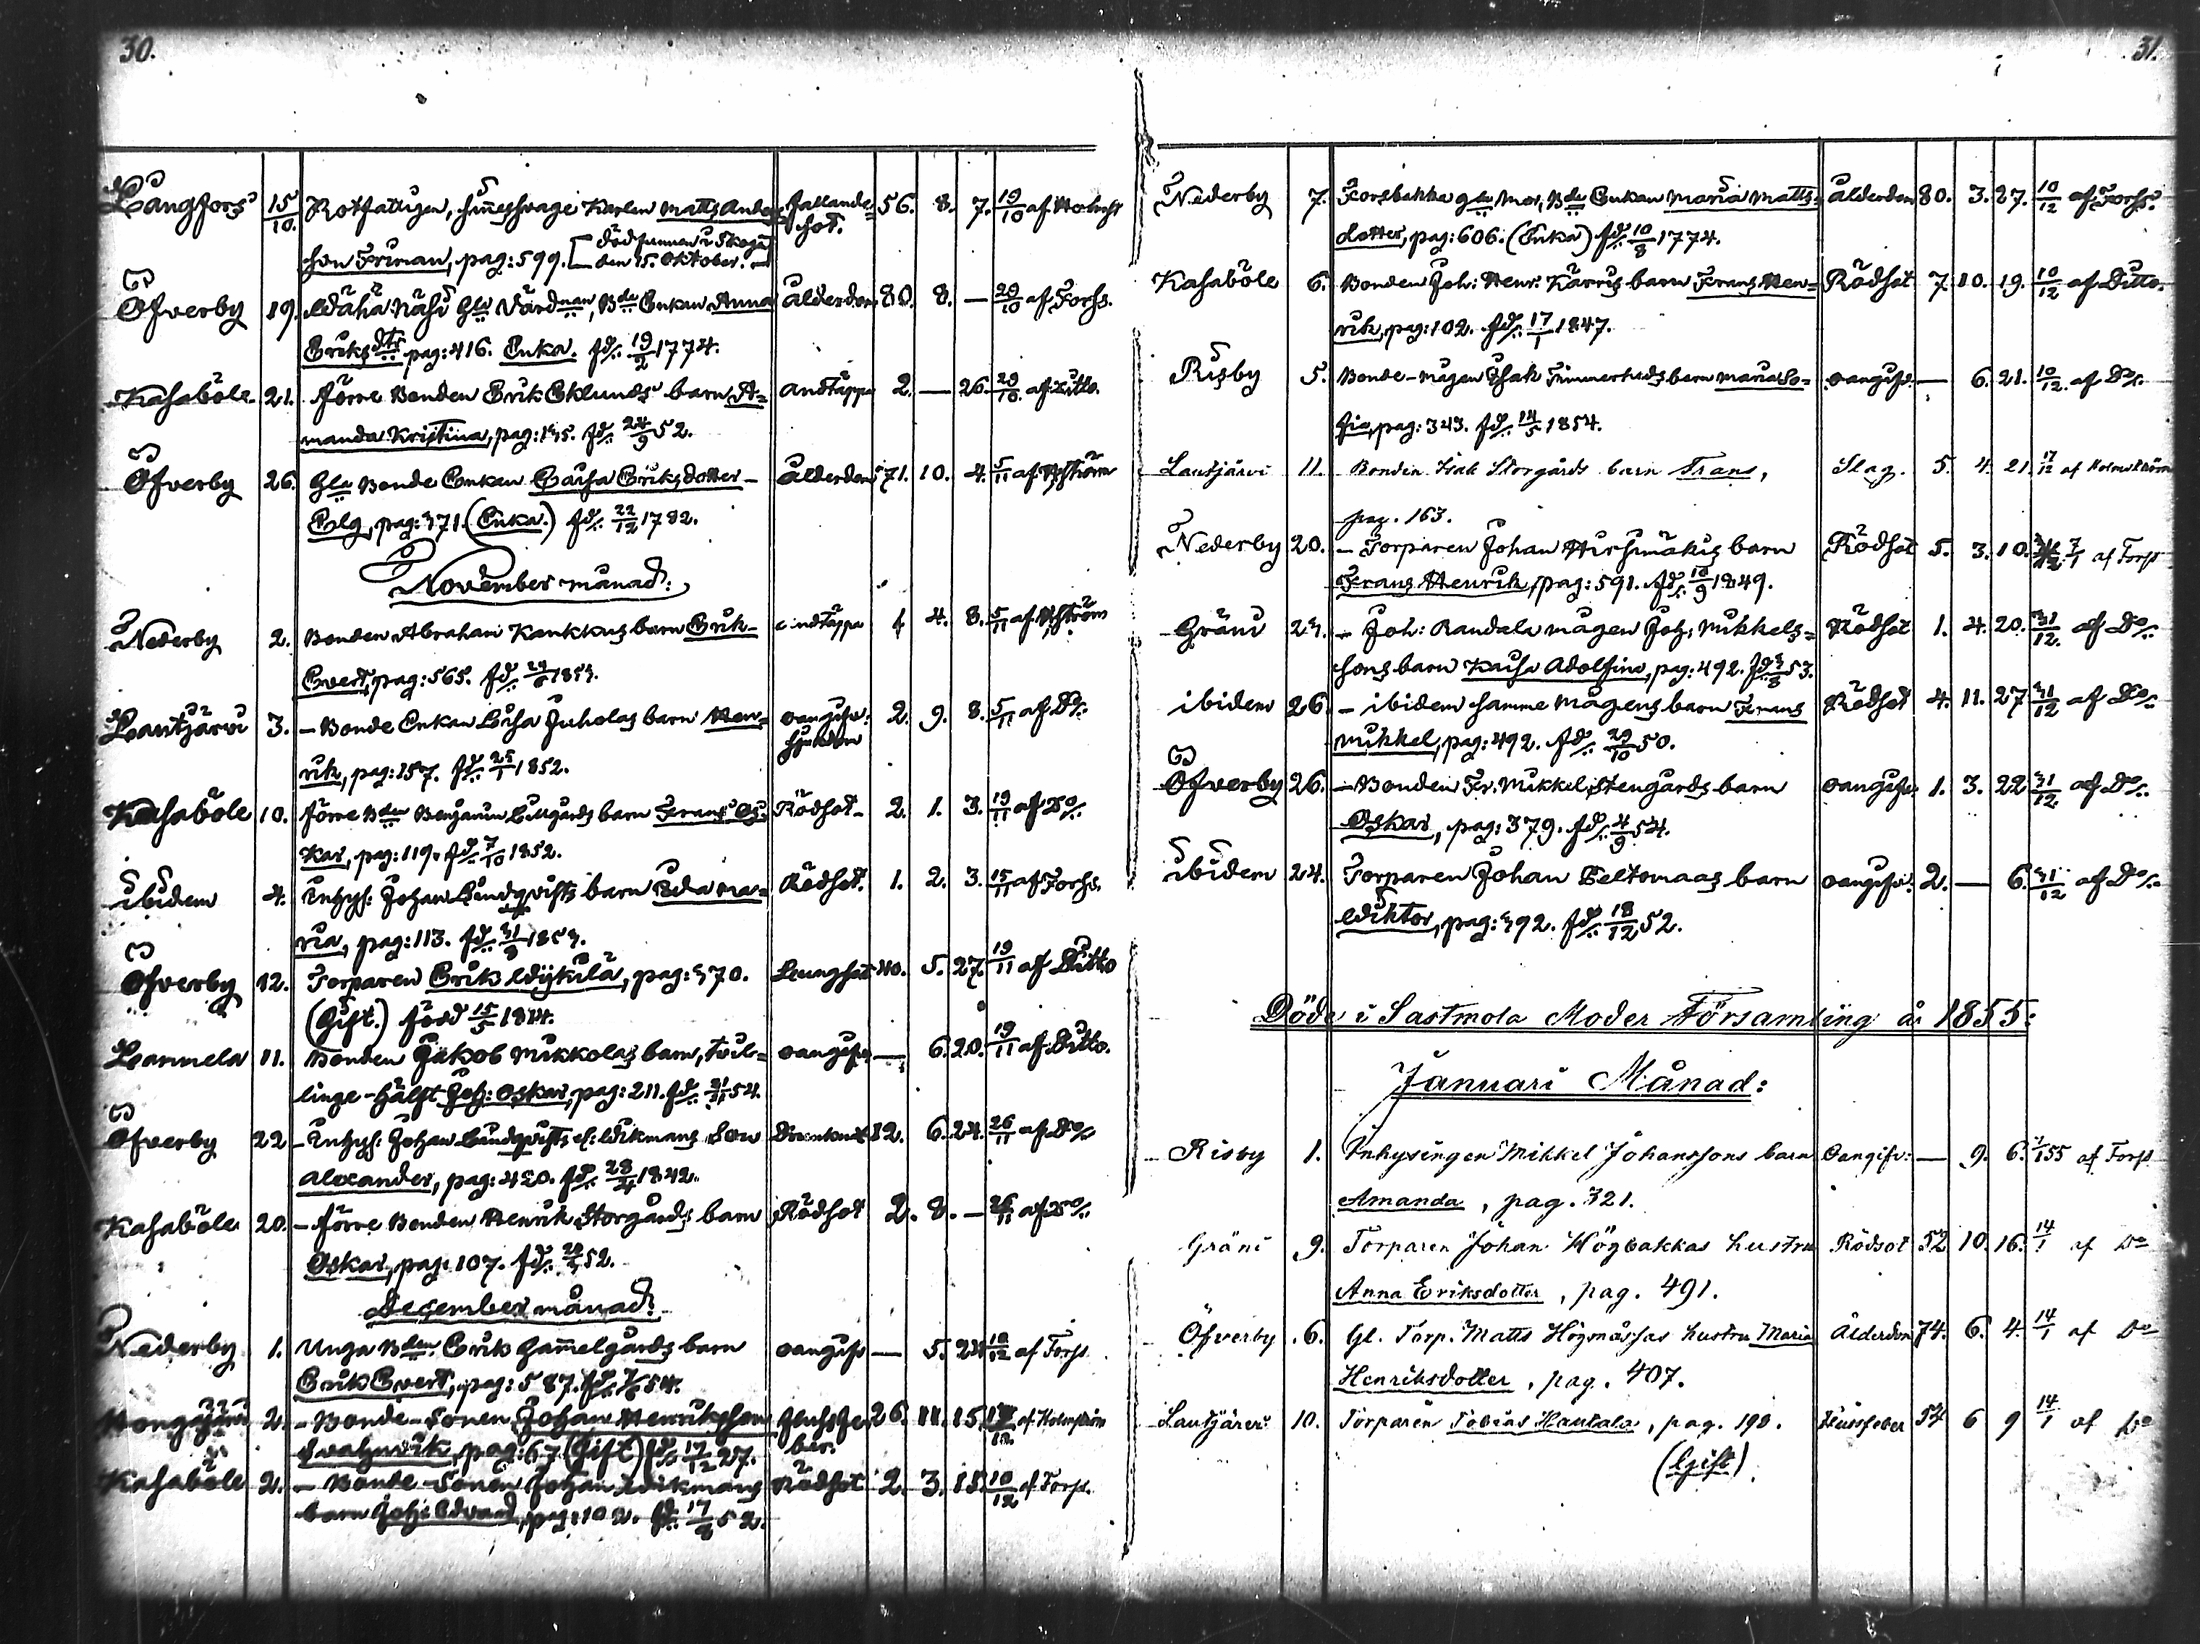 30.
Långfors 15/10. Rotfattigen, sinnesswage Karlen Matts Anders= fallande= 56. 8. 7. 19/10 af Holmst
son Friman, pag: 599. [död funnen i Skogen sot.
den 15. Oktober.]
Öfverby 19. Wähä Näsi Gla Värdnan, Bde Enkan Anna Ålderdom 80. 8. — 29/10 af Forss.
Eriksdtr pag: 416. Enka. fd. 19/2 1774.
Kasaböle 21. förre Bonden Erik Eklunds barn A= andtäppa 2. — 26. 29/10 af Ditto.
manda Kristina, pag: fd. 24/9 52.
Öfverby 26. Gla Bonde Enkan Caisa Eriksdotter Ålderdom 71. 10. 4. 5/11 af
pag: 371. (Enka.) fd. 22/12 1782.
November månad:
Nederby 2. Bonden Abraham Kankkus barn Erik andtäppa 1 4. 8. 5/11 af
Evert, pag: 565. fd. 1853.
Lautjärvi 3. – Bonde Enkan Lisa Juholas barn Hen= oangifv. 2. 9. 8. 5/11 af Do
rik, pag: 157. fd. 25/1 1852. sjukdom
Kasaböle 10. förre Bden Benjamin Lillgårds barn Frans Os= Rödsot 2. 1. 3. 19/11 af Do
kar, pag: 119. fd. 7/10 1852.
ibidem 4. Inhys: Johan Lindqvists barn Eda Ma= Rödsot. 1. 2. 3. 15/11 af Forss.
ria, pag: 113. fd. 31/8 1853.
Öfverby 12. Torparen Erik Wijkilä, pag: 370. Lungsot 40. 5. 27. 19/11 af Ditto
(Gift.) född 15/5 1814.
Lanmela 11. Bonden Jakob Mikkolas barn, tvil= oangifv — 6. 20. 19/11 af Ditto.
linge-hälft Joh: Oskar, pag: 211. fd. 54.
Öfverby 22 – Inhys: Johan Lindqvists el: Wikmans Son Drunknat 12. 6. 24. 26/11 af Do
Alexander, pag: 420. fd. 28/4 1842.
Kasaböle 20. – förre Bonden Henrik Storgårds barn Rödsot 2. 8. — 26/11 af Do
Oskar, pag: 107. fd. 52.
December månad:
Nederby 1. Unga Bden Erik Gammelgårds barn oangifv — 5. 24 10/12 af Forss
Erik Evert, pag: 587. fd. 54.
2. – Bonde-Sonen Johan Henriksson 26. 11. 15. af Holmström
pag: 67 (Gift) fd. 17/12 27. ber.
Kasaböle 2. – Bonde-Sonen Johan Wikmans Rödsot 2. 3. 15. 10/12 af Forss.
barn Joh: Edvard, pag: 102. fd. 17/8 52.
31.
Nederby 7. Forsbakka gla Mor, Bde Enkan Maria Matts= Ålderdom 80. 3. 27. 10/12 af Forss.
dotter, pag: 606. (Enka) fd. 10/8 1774.
Kasaböle 6. Bonden Joh: Henr: Kärris barn Frans Hen= Rödsot 7 10. 19. 10/12 af Ditto.
rik, pag: 102. fd. 17/1 1847.
Risby 5. Bonde-Mågen Isak Timmerheds barn Maria So= oangifv. — 6. 21. 10/12 af Do
fia, pag: 343. fd. 14/5 1854.
Lautjärvi 11. Bonden Isak Storgårds barn Frans, Slag. 5. 4. 21 17/12 af Holmström
pag. 163.
Nederby 20. – Torparen Johan Hirsimäkis barn Rödsot 5. 3. 10. 7/1 af Forss
Frans Henrik, pag: 591. fd. 10/9 1849.
Gräni 23. – Joh: Randala mågen Joh: Mikkels= Rödsot 1. 4. 20. 31/12. af Do
sons barn Kaisa Adolfina, pag: 492. fd. 3/8 53.
ibidem 26. – ibidem samme Mågens barn Frans Rödsot 4. 11. 27 31/12 af Do
Mikkel, pag: 492. fd. 29/10 50.
Öfverby 26. – Bonden Fr. Mikkel Stengårds barn oangifv 1. 3. 22 31/12. af Do
Oskar, pag: 379. fd. 4/9 54.
ibidem 24. Torparen Johan Peltomaas barn oangifv. 2. — 6. 31/12 af Do
Wiktor, pag: 392. fd. 18/12 52.
Döde i Sastmola Moder Församling år 1855:
Januari Månad:
Risby 1. Inhysingen Mikkel Johanssons barn Oangifv: — 9. 6. 7/1 55 af Forss
Amanda, pag. 321.
Gräni 9. Torparen Johan Högbakkas hustru Rödsot 52 10. 16. 14/1 af Do
Anna Eriksdotter, pag. 491.
Öfverby 6. Gl. Torp. Matts Högmässas hustru Maria Ålderdom 74. 6. 4. 14/1 af Do
Henriksdotter, pag. 407.
Lautjärvi 10. Torparen Tobias Hautala, pag. 190. 54 6 9 14/1 af Do
(Gift)